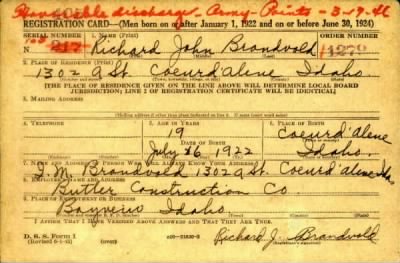 Honorable discharge, Army
REGISTRATION CARD—(Men born on or after January 1, 1922 and on or before June 30, 1924)
SERIAL NUMBER 1. NAME (Print) ORDER NUMBER
N 217 Richard John Brandvold 1279
2. PLACE OF RESIDENCE (Print)
1302 9 St. Coeur d'alene Idaho
[THE PLACE OF RESIDENCE GIVEN ON THE LINE ABOVE WILL DETERMINE LOCAL BOARD
JURISDICTION; LINE 2 OF REGISTRATION CERTIFICATE WILL BE IDENTICAL]
3. MAILING ADDRESS
4. TELEPHONE 5. AGE IN YEARS 6. PLACE OF BIRTH
19 Coeur d'Alene
DATE OF BIRTH
July 26 1922 Idaho
7. NAME AND ADDRESS OF PERSON WHO WILL ALWAYS KNOW YOUR ADDRESS
M. Brandvold 1302 9 St. Coeur d'alene Ida
8. EMPLOYER'S NAME AND ADDRESS
Butler Construction Co
9. PLACE OF EMPLOYMENT OR BUSINESS
Bayview Idaho
I AFFIRM THAT I HAVE VERIFIED ABOVE ANSWERS AND THAT THEY ARE TRUE.
D. S. S. Form 1
Richard J. Brandvold